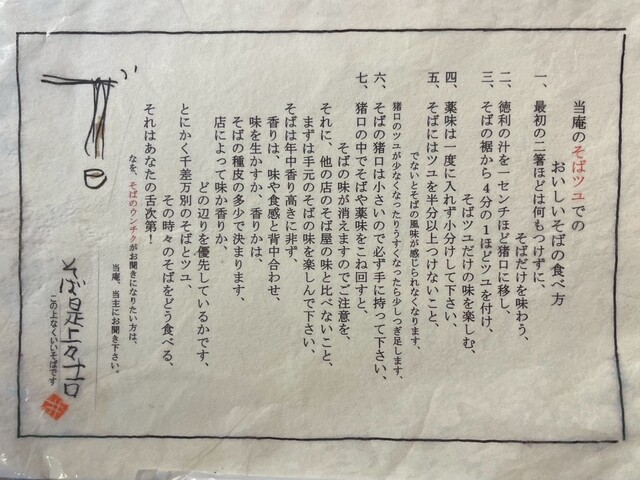 当庵のそばツユでの
おいしいそばの食べ方
一、最初の二箸ほどは何もつけずに、
そばだけを味わう、
二、徳利の汁を一センチほど猪口に移し、
三、そばの裾から4分の1ほどツユを付け、
そばツユだけの味を楽しむ、
四、薬味は一度に入れず小分けして下さい、
五、そばにはツユを半分以上つけないこと、
でないとそばの風味が感じられなくなります、
猪口のツユが少なくなったりうすくなったら少しつぎ足します、
六、そばの猪口は小さいので必ず手に持って下さい、
七、猪口の中でそばや薬味をこね回すと、
そばの味が消えますのでご注意を、
それに、他の店のそば屋の味と比べないこと、
まずは手元のそばの味を楽しんで下さい、
そばは年中香り高きに非ず、
香りは、味や食感と背中合わせ、
味を生かすか、香りかは、
そばの種皮の多少で決まります、
店によって味か香りか、
どの辺りを優先しているかです、
とにかく千差万別のそばとツユ、
その時々のそばをどう食べる、
それはあなたの舌次第！
なを、そばのウンチクがお聞きになりたい方は、
当庵、当主にお聞き下さい。
そば是上々吉
この上なくいいそばです